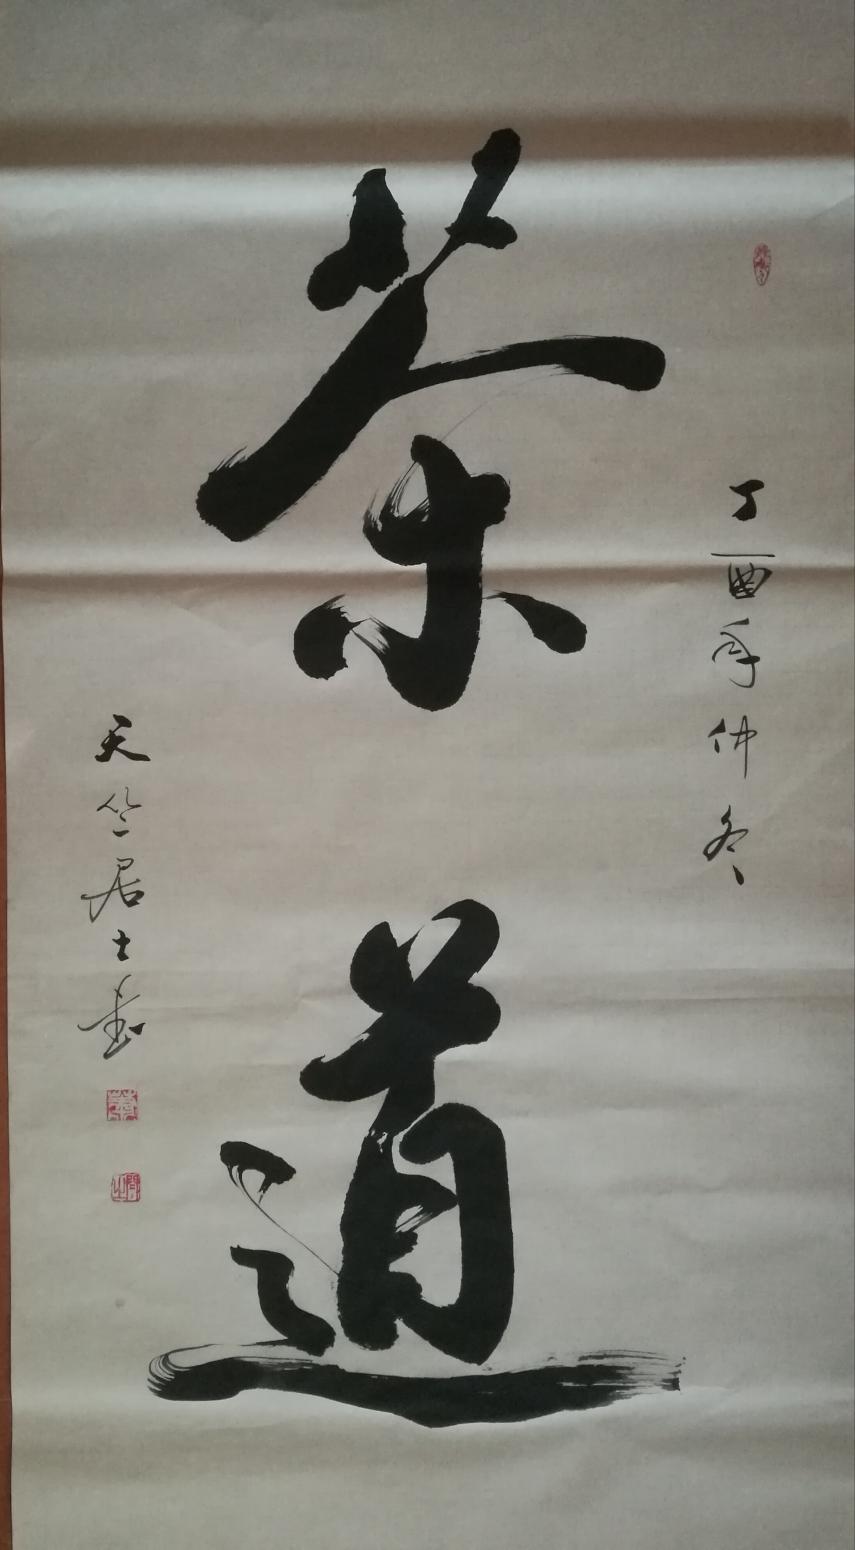 丁酉年仲冬
茶道
天竺居士书